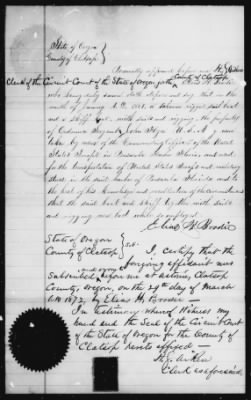 State of Oregon
County of Clatsop
Personally appeared before me H. G. Aiken
Clerk of the Circuit Court of the State of Oregon for the County of Clatsop Elias H. Brodie
who being duly sworn doth depose and say that in the
month of January A.D. 1861, a schooner rigged sail boat
and a skiff boat with sails and rigging, the property
of Ordnance Sergeant John Flynn U.S.A. were
taken by men of the Commanding Officer of the United
States Troops in Pensacola Harbor Florida and used
for the transportation of United States troops and military
stores in the said harbor of Pensacola Florida and to
the best of his knowledge and recollection of the circumstances
that the said boat and skiff by the with sails
and rigging were lost while so employed.
Elias H. Brodie
State of Oregon
County of Clatsop } SS.
I, certify that the
foregoing affidavit was
subscribed and sworn before me at Astoria, Clatsop
County, Oregon, on the 29th day of March
A.D. 1872, by Elias H. Brodie
In testimony whereof Witness my
hand and the Seal of the Circuit Court
of the State of Oregon for the County of
Clatsop hereto affixed —
H. G. Aiken
Clerk as aforesaid.